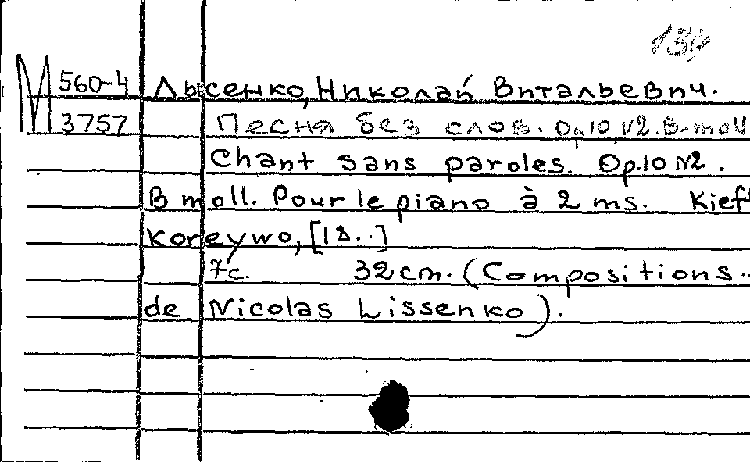 134
М 560-4 Лысенко, Николай Витальевич.
3757 Песня без слов. Op.10, N2. B-moll
Chant sans paroles. Op.10 N2.
B moll. Pour le piano à 2 ms. Kieff
Koreywo, [18..]
7с. 32 cm. (Compositions..
de Nicolas Lissenko).